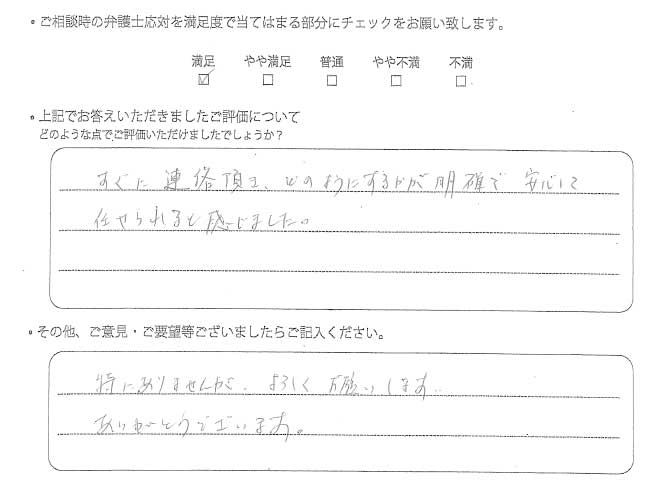 ・ご相談時の弁護士応対を満足度で当てはまる部分にチェックをお願い致します。
満足 やや満足 普通 やや不満 不満
☑ □ □ □ □
・上記でお答えいただきましたご評価について
どのような点でご評価いただけましたでしょうか？
すぐに連絡頂き、どのようにするかが明確で安心して
任せられると感じました。
・その他、ご意見・ご要望等ございましたらご記入ください。
特にありませんが、よろしくお願いします。
ありがとうございます。